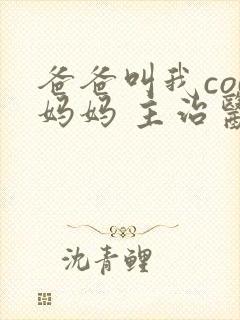 爸爸叫我co
妈妈 主治
沈青鲤